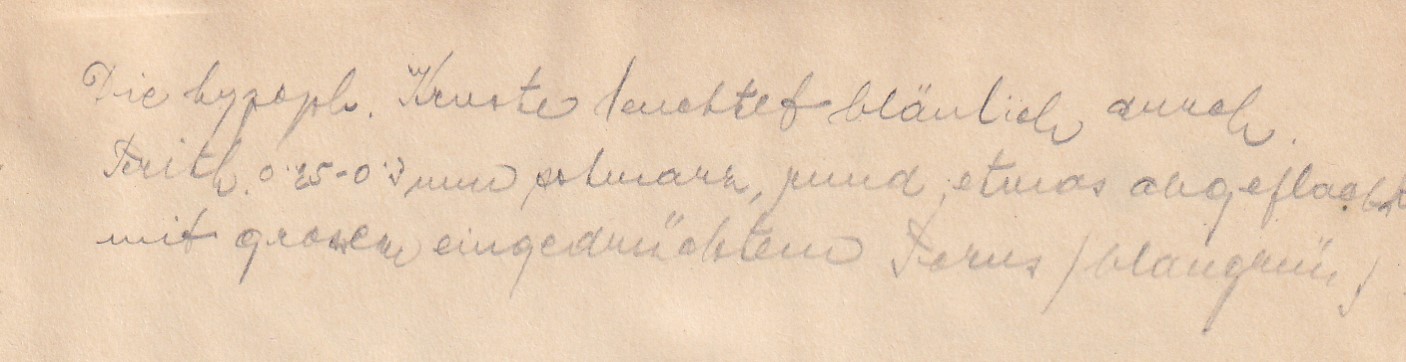 Die hypoph. Kruste leuchtet bläulich durch.
Perith. 0·25-0·3 mm schwarz, rund, etwas abgeflacht
mit grossem eingedrücktem Porus / blaugrün /